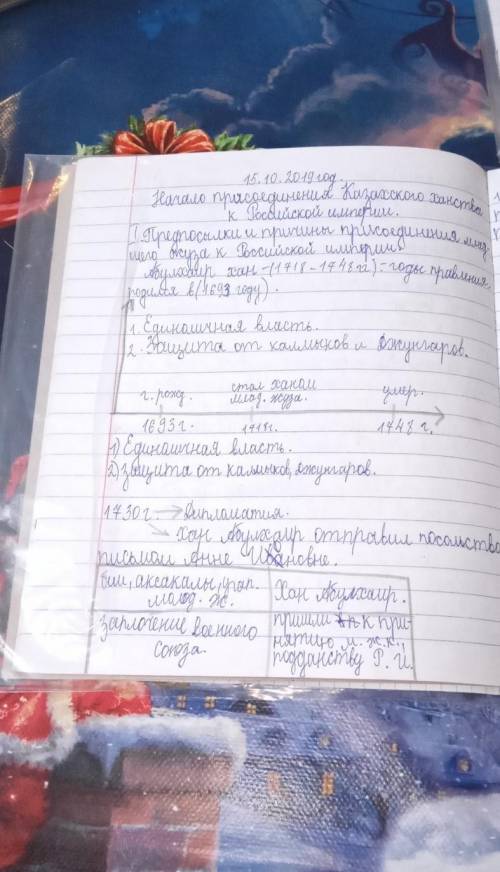 15.10.2019 год.
Начало присоединения Казахского ханства
к Российской империи.
I. Предпосылки и причины присоединения млад-
шего жуза к Российской империи
Абулхаир хан - (1718 - 1748 гг) - годы правления
родился в (1693 году).
1. Единоличная власть.
2. Защита от калмыков и джунгаров.
г. рожд. стал ханом умер.
млад. жуза.
1693 г. 1718 г. 1748 г.
1) Единоличная власть.
2) защита от калмыков, джунгаров.
1730 г. → Дипломатия.
→ Хан Абулхаир отправил посольство
письмом Анне Ивановне.
бии, аксакалы, упр.
молод. ж.
Хан Абулхаир.
заключение военного
союза.
пришли к при-
нятию м. ж. к
подданству Р. И.